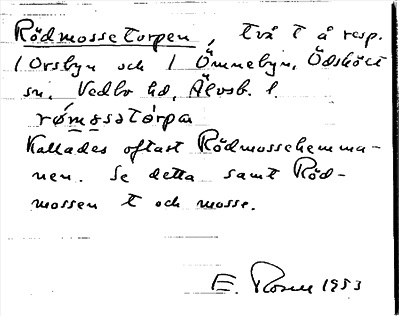 Rödmossetorpen, två t å resp.
1 Orsbyn och 1 Ömnebyn, Ödsköls
sn. Vedbo hd, Älvsb. l.
rǿmosstórpa
Kallades oftast Rödmossehemma-
nen. Se detta samt Röd-
mossen t och mosse.
E. Rosell 1953